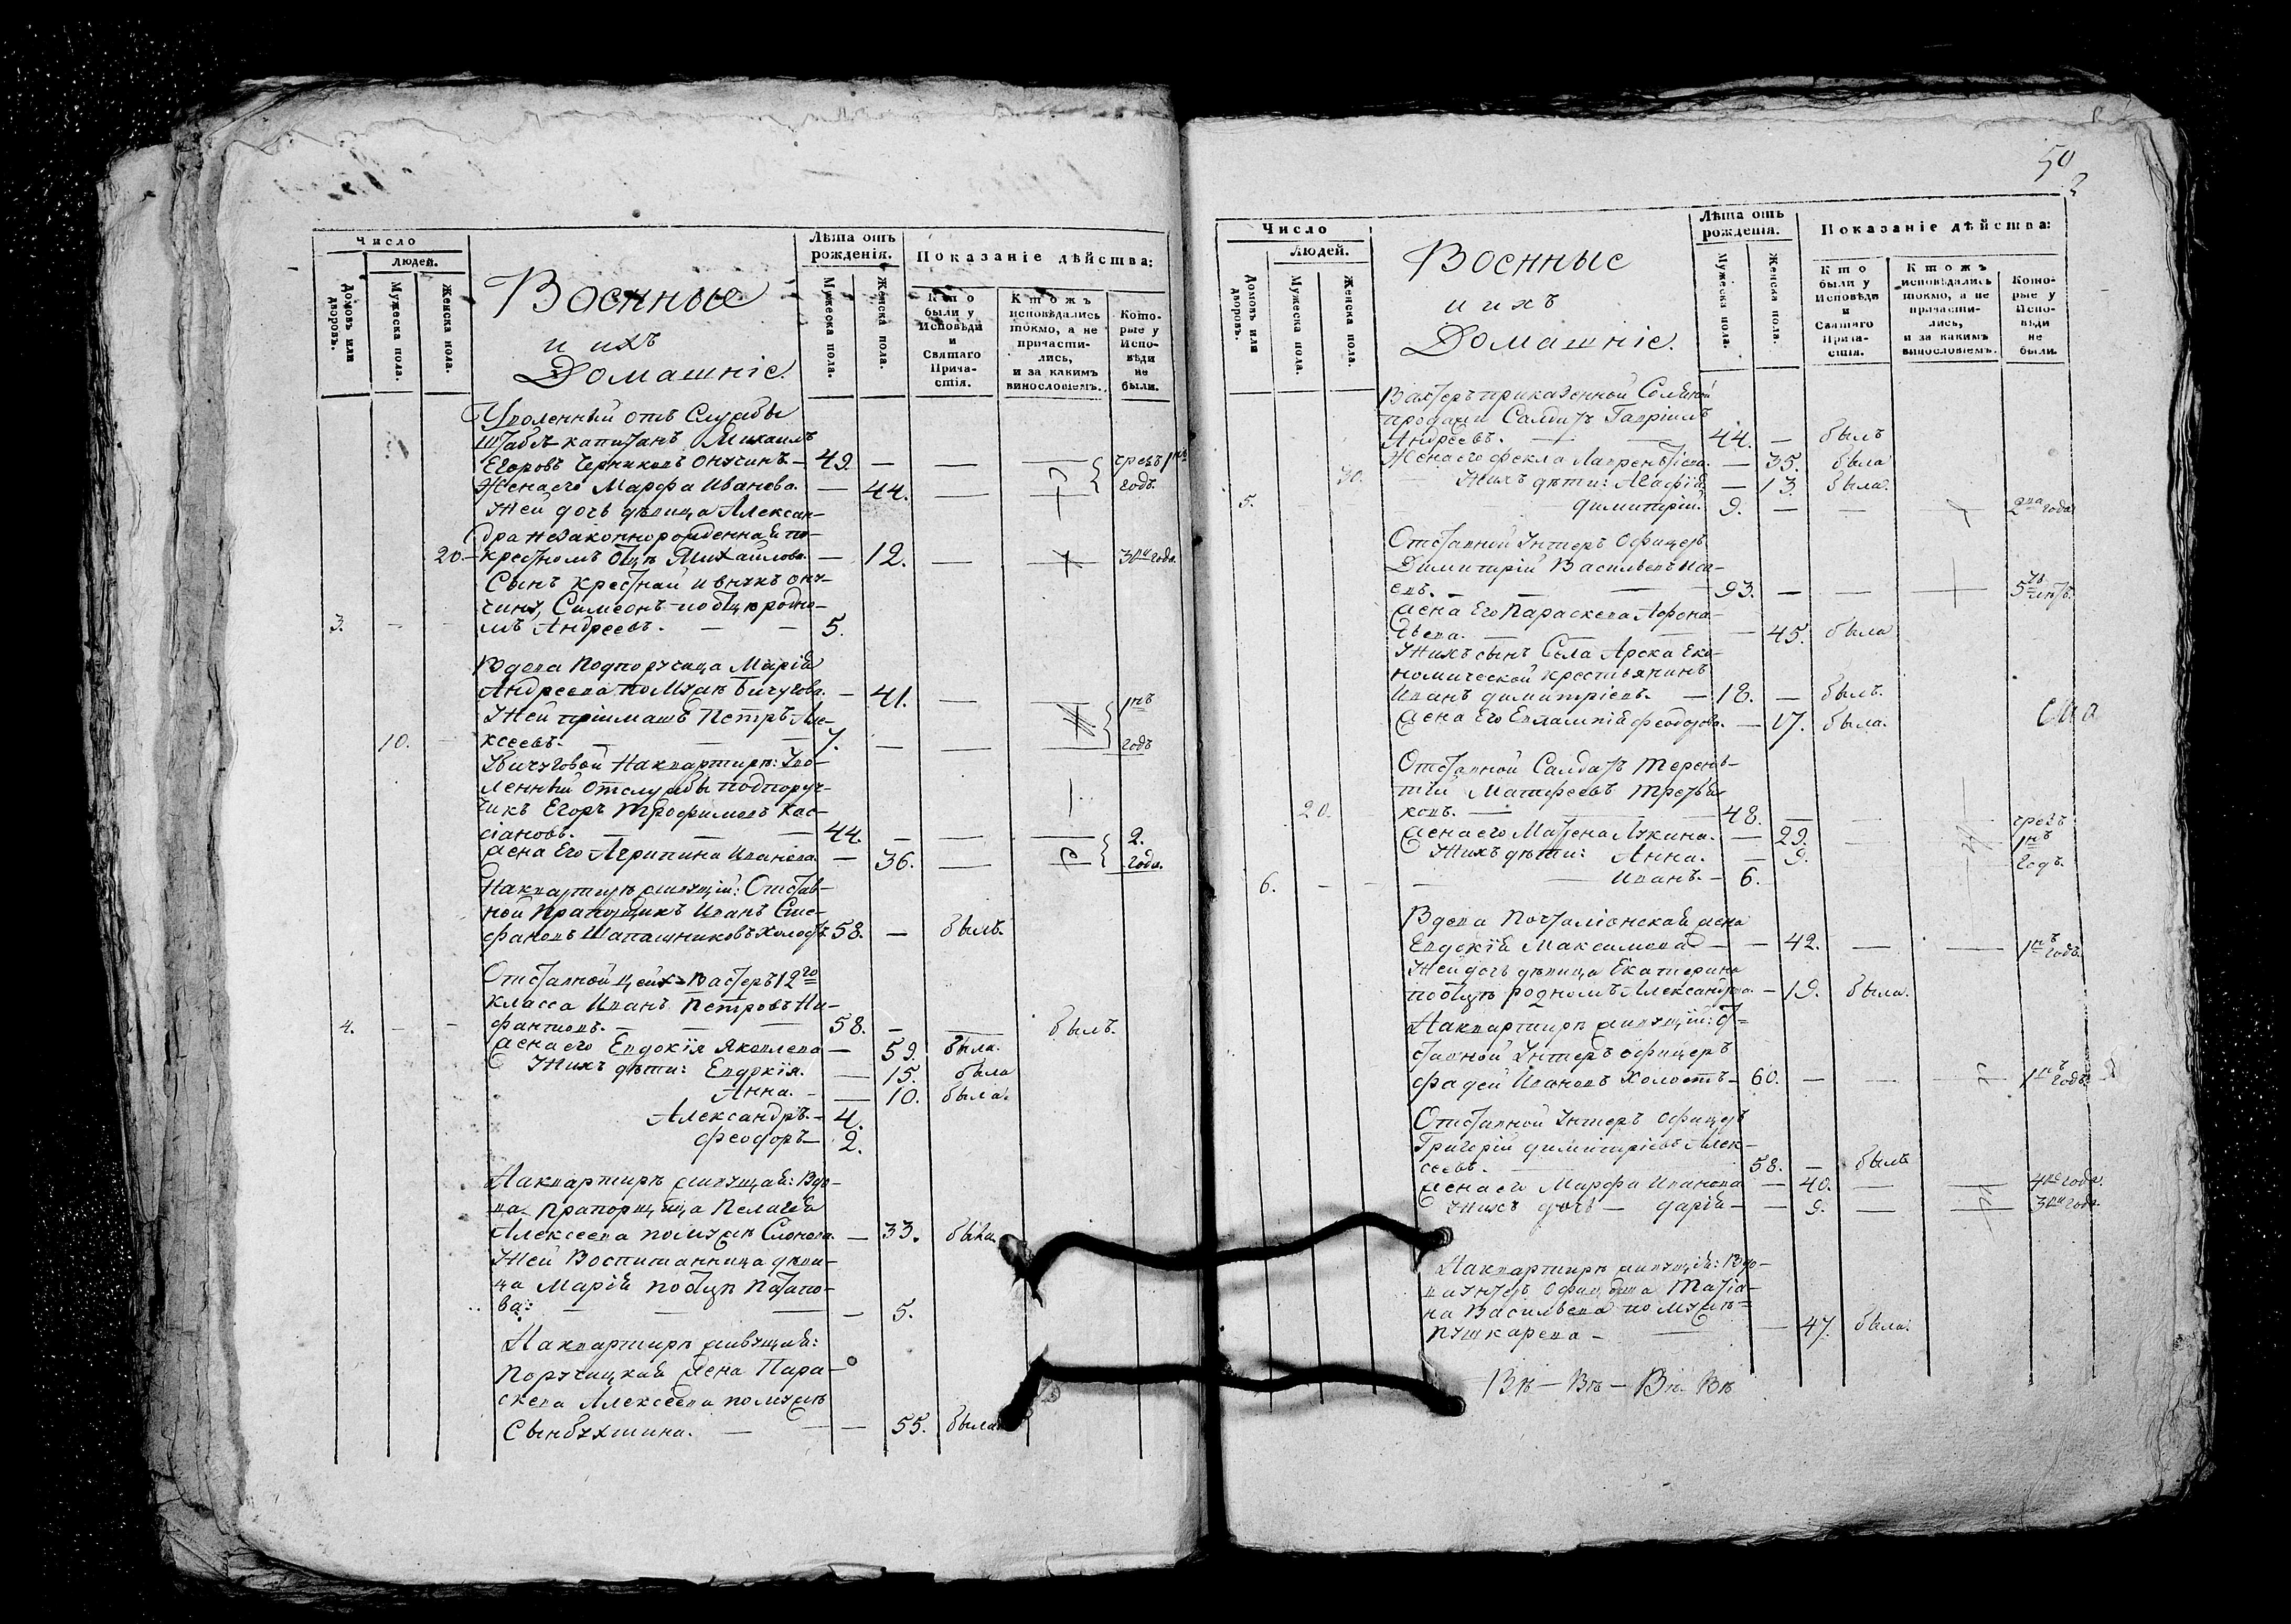 Число
людей.
Домовъ или дворовъ.
Мужеска пола.
Женска пола.
Военные
и ихъ
Домашніе.
Лѣта отъ рожденія.
Мужеска пола.
Женска пола.
Показаніе дѣйства:
Кто были у Исповѣди и Святаго Причастія.
Ктожъ исповѣдались токмо, а не причастились, и за какимъ винословіемъ.
Которые у Исповѣди не были.
Уволенный отъ Службы
штабсъ капитанъ Михаилъ
Егоровъ Черниковъ Онучинъ. — 49. — — — чрезъ 1нъ
Жена его Марфа Иванова. — 44. — — годъ.
У ней дочь девица Алексан-
дра незаконнорожденная по
20 крестномъ отцѣ Михайлова. — 12. — — 3ри года.
Сынъ крестной и внукъ ону-
чину, Симеонъ по отцѣ родно-
3. — — мъ Андреевъ. — — 5.
Вдова Подпоручица Марія
Андреева по мужѣ Бичугова. — 41. — — 1нъ
У ней приимашъ Петръ Але-
10. ксеевъ. — — 7. — — — годъ
У Бичуговой на квартирѣ: Уво-
ленный отслужбы подпоруч-
чикъ Егоръ Трофимовъ Кас-
сіановъ. — — — 44. — — — 2.
Жена Его Агрипина Иванова — 36. — — года.
На квартирѣ живущій: Отстав-
ной Прапорщикъ Иванъ Сте-
фановъ Шапашниковъ холостъ 58. — былъ.
Отставной цейхъ-Вахтеръ 12го
класса Иванъ Петровъ Ни-
4. — — фантовъ. — — — 58. — — былъ.
Жена его Евдокія Яковлева — 59. была.
У нихъ дѣти: Евдокія. — 15. была
Анна. — 10. была.
Александръ. — 4.
Феодоръ — 2.
На квартирѣ живущая: Вдо-
ва Прапорщица Пелагея
Алексеева по мужѣ Слонова. — 33. была
У ней Воспитанница деви-
ца Марія по отцѣ Потапо-
ва: — — — — 5.
На квартирѣ живущая:
Поручицкая жена Пара-
скева Алексеева по мужѣ
Сынбухтина. — — — 55. была
50
Число
людей.
Домовъ или дворовъ.
Мужеска пола.
Женска пола.
Военные
и ихъ
Домашніе.
Лѣта отъ рожденія.
Мужеска пола.
Женска пола.
Показаніе дѣйства:
Кто были у Исповѣди и Святаго Причастія.
Ктожъ исповѣдались токмо, а не причастились, и за какимъ винословіемъ.
Которые у Исповѣди не были.
Вахтеръ приказенной Соляной
продажи Салдатъ Гавріилъ
Андреевъ. — — 44. — былъ
Жена его Фекла Лаврентіева. — 35. была
30. У нихъ дѣти: Агафія — 13. была.
5. Димитрій. 9. — — 2ва года
Отставной Унтеръ Офицеръ
Димитрій Васильевъ
евъ. — — — 93. — — — 5ть лѣтъ.
Жена Его Параскева Афона-
сьева. — — — 45. была
У нихъ сынъ Села Арска Эко-
номической крестьянинъ
Иванъ Димитріевъ. — 18. — былъ.
Жена Его Евлампія Феодорова. — 17. была.
Отставной Салдатъ Терень-
тій Матфеевъ Третья
20. ковъ. — — 48. — — чрезъ
Жена его Матрена Лукина. — 29. 1нъ
У нихъ дѣти: Анна. — 9. годъ.
6. — — Иванъ. — 6.
Вдова Почталіонская жена
Евдокія Максимова — — 42. — — 1нъ годъ.
У ней дочь девица Екатерина
по отцѣ родномъ Александрова. — 19. была.
На квартирѣ живущій: От-
ставной Унтеръ офицеръ
Фадей Ивановъ холостъ — 60. — — — 1нъ годъ.
Отставной Унтеръ Офицеръ
Григорій Димитріевъ Алек-
сеевъ. 58. — былъ
Жена его Марфа Иванова — 40. — — 4ре года.
У нихъ дочь — Дарія — — 9. — — 3ри года.
На квартирѣ живущій: Вдо-
ва унтеръ офицерша Татіа-
на Васильева по мужѣ
Пушкарева — — — 47. была.
Вѣ — Вѣ — Вѣ Вѣ